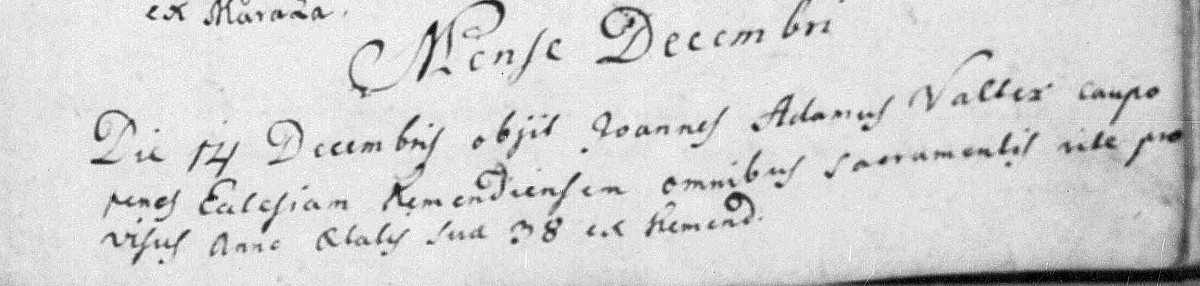 ex Muraza.
Mense Decembri
Die 14 Decembris objit Joannes Adamus Valter caupo
penes Eclesiam Kemendiensem omnibus sacramentis rite pro
visus Anno Ætatis suæ 38 ex Kemend.